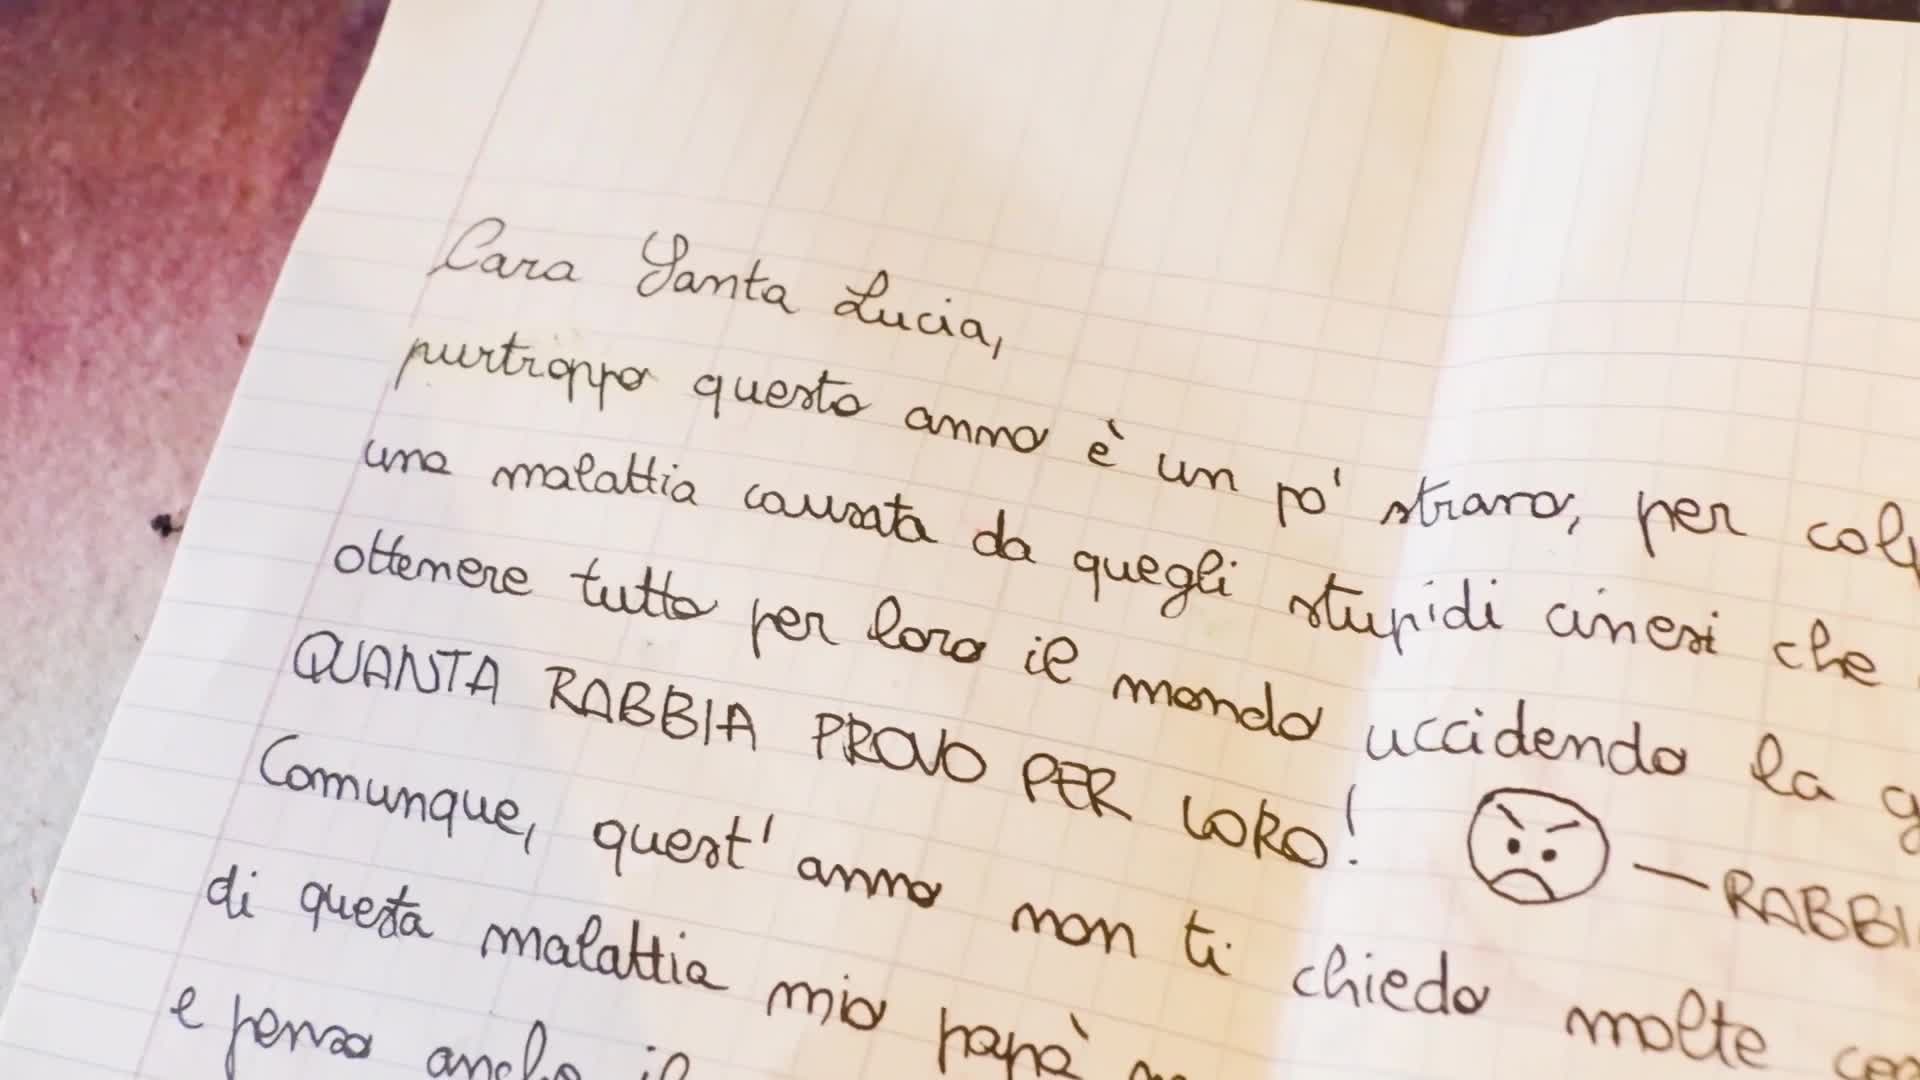 Cara Santa Lucia,
purtroppo questo anno è un po' strano, per
una malattia causata da quegli stupidi cinesi che
ottenere tutto per loro il mondo uccidendo la
QUANTA RABBIA PROVO PER LORO! — RABBI
Comunque, quest' anno non ti chiedo molte
di questa malattia mio papà
e penso anche il